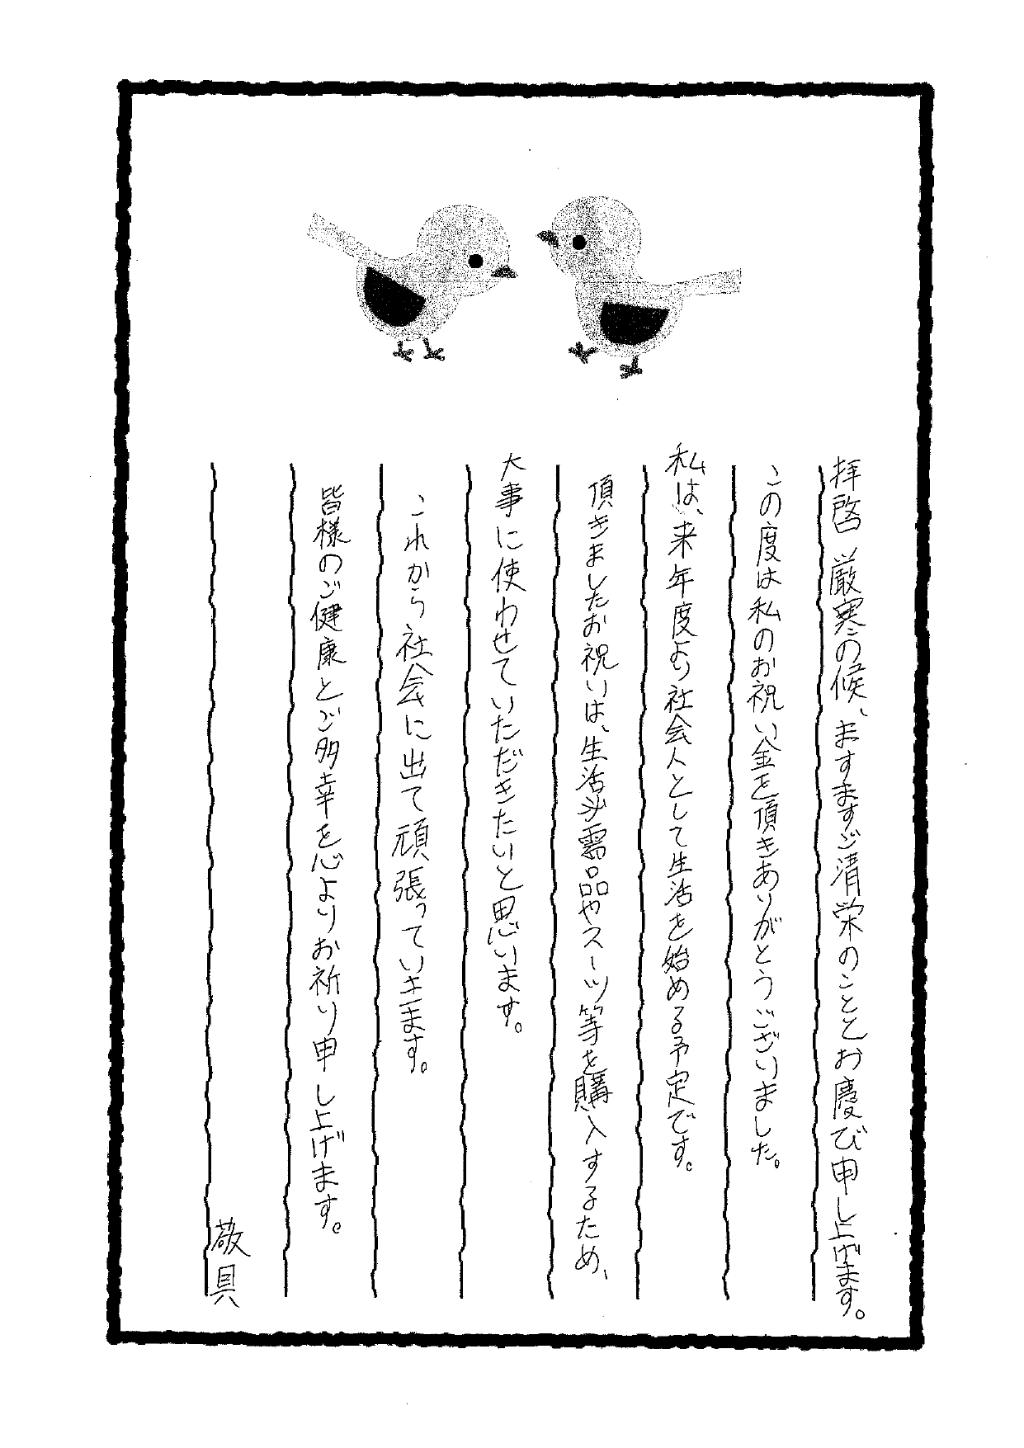 拝啓 厳寒の候、ますますご清栄のこととお慶び申し上げます。
この度は私のお祝い金を頂きありがとうございました。
私は、来年度より社会人として生活を始める予定です。
頂きましたお祝いは、生活必需品やスーツ等を購入するため、
大事に使わせていただきたいと思います。
これから社会に出て頑張っていきます。
皆様のご健康とご多幸を心よりお祈り申し上げます。
敬具